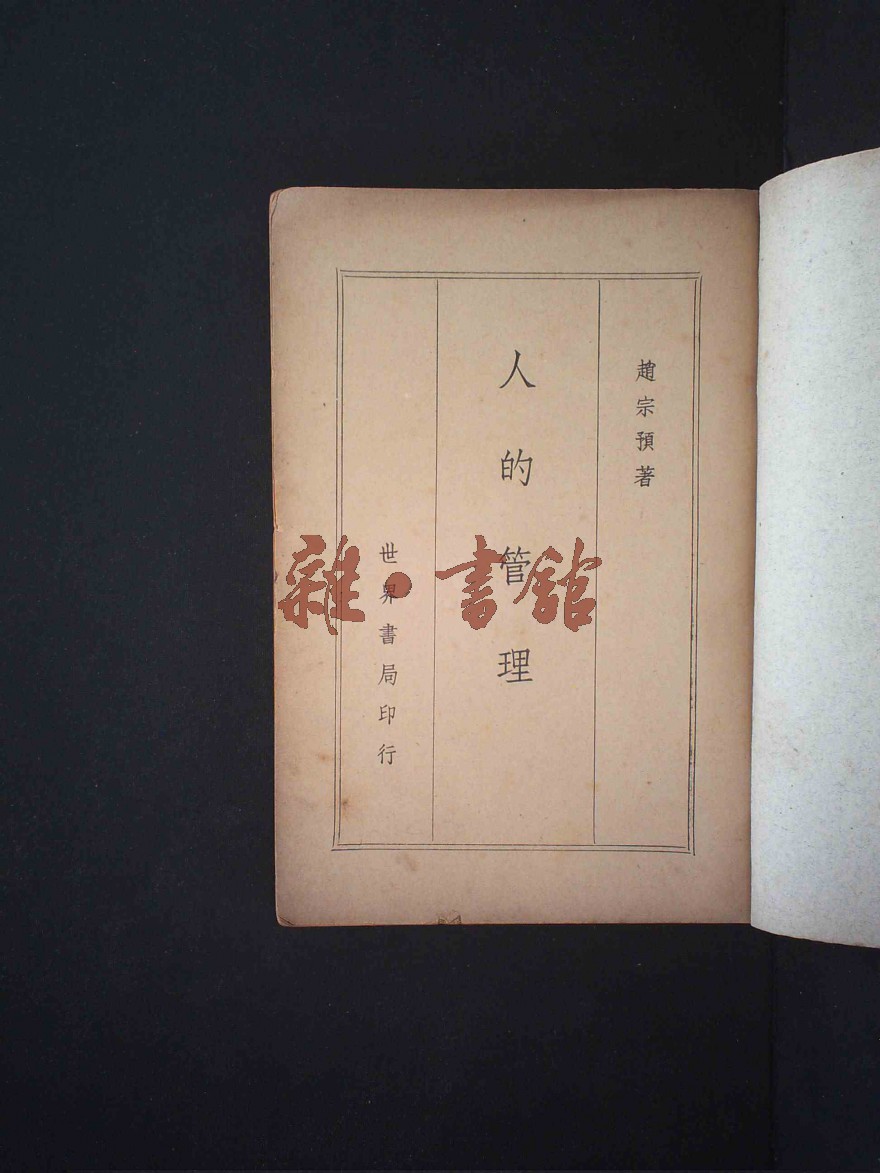 趙宗預著
人的管理
世界書局印行
雜·書館